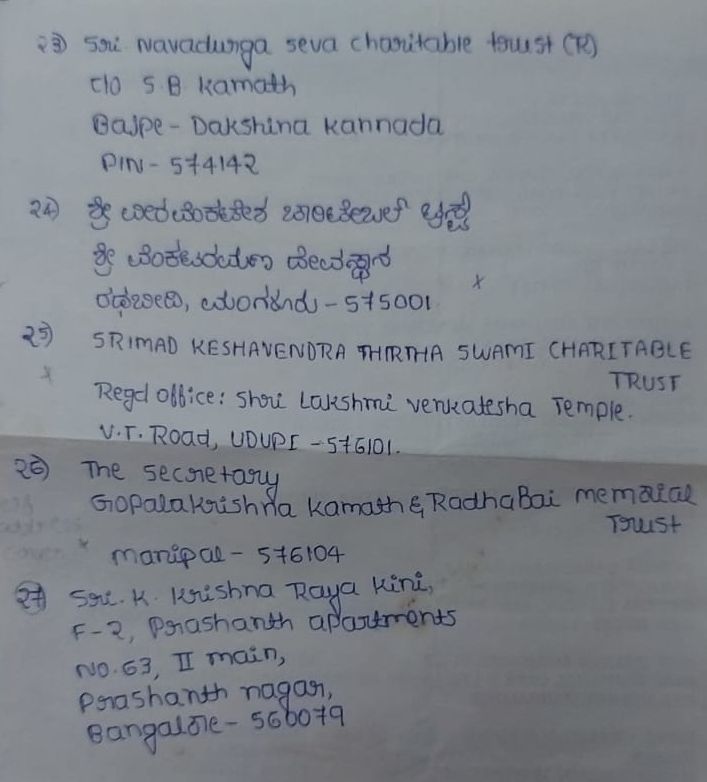 23) Sri Navadurga seva charitable trust (R)
C/o S.B Kamath
Bajpe - Dakshina Kannada
PIN - 574142
24) ಶ್ರೀ ವೀರವೆಂಕಟೇಶ ಚಾರಿಟೇಬಲ್ ಟ್ರಸ್ಟ್
ಶ್ರೀ ವೆಂಕಟರಮಣ ದೇವಸ್ಥಾನ
ರಥಬೀದಿ, ಮಂಗಳೂರು - 575001
x
25) SRIMAD KESHAVENDRA THIRTHA SWAMI CHARITABLE
TRUST
x
Regd Office: Shri Lakshmi Venkatesha Temple.
V.T. Road, UDUPI - 576101.
26) The secretary
Gopalakrishna Kamath & RadhaBai memorial
Trust
x manipal - 576104
27) Sri. K. Krishna Raya Kini,
F-2, Prashanth apartments
No. 63, II main,
Prashanth nagar,
Bangalore - 560079